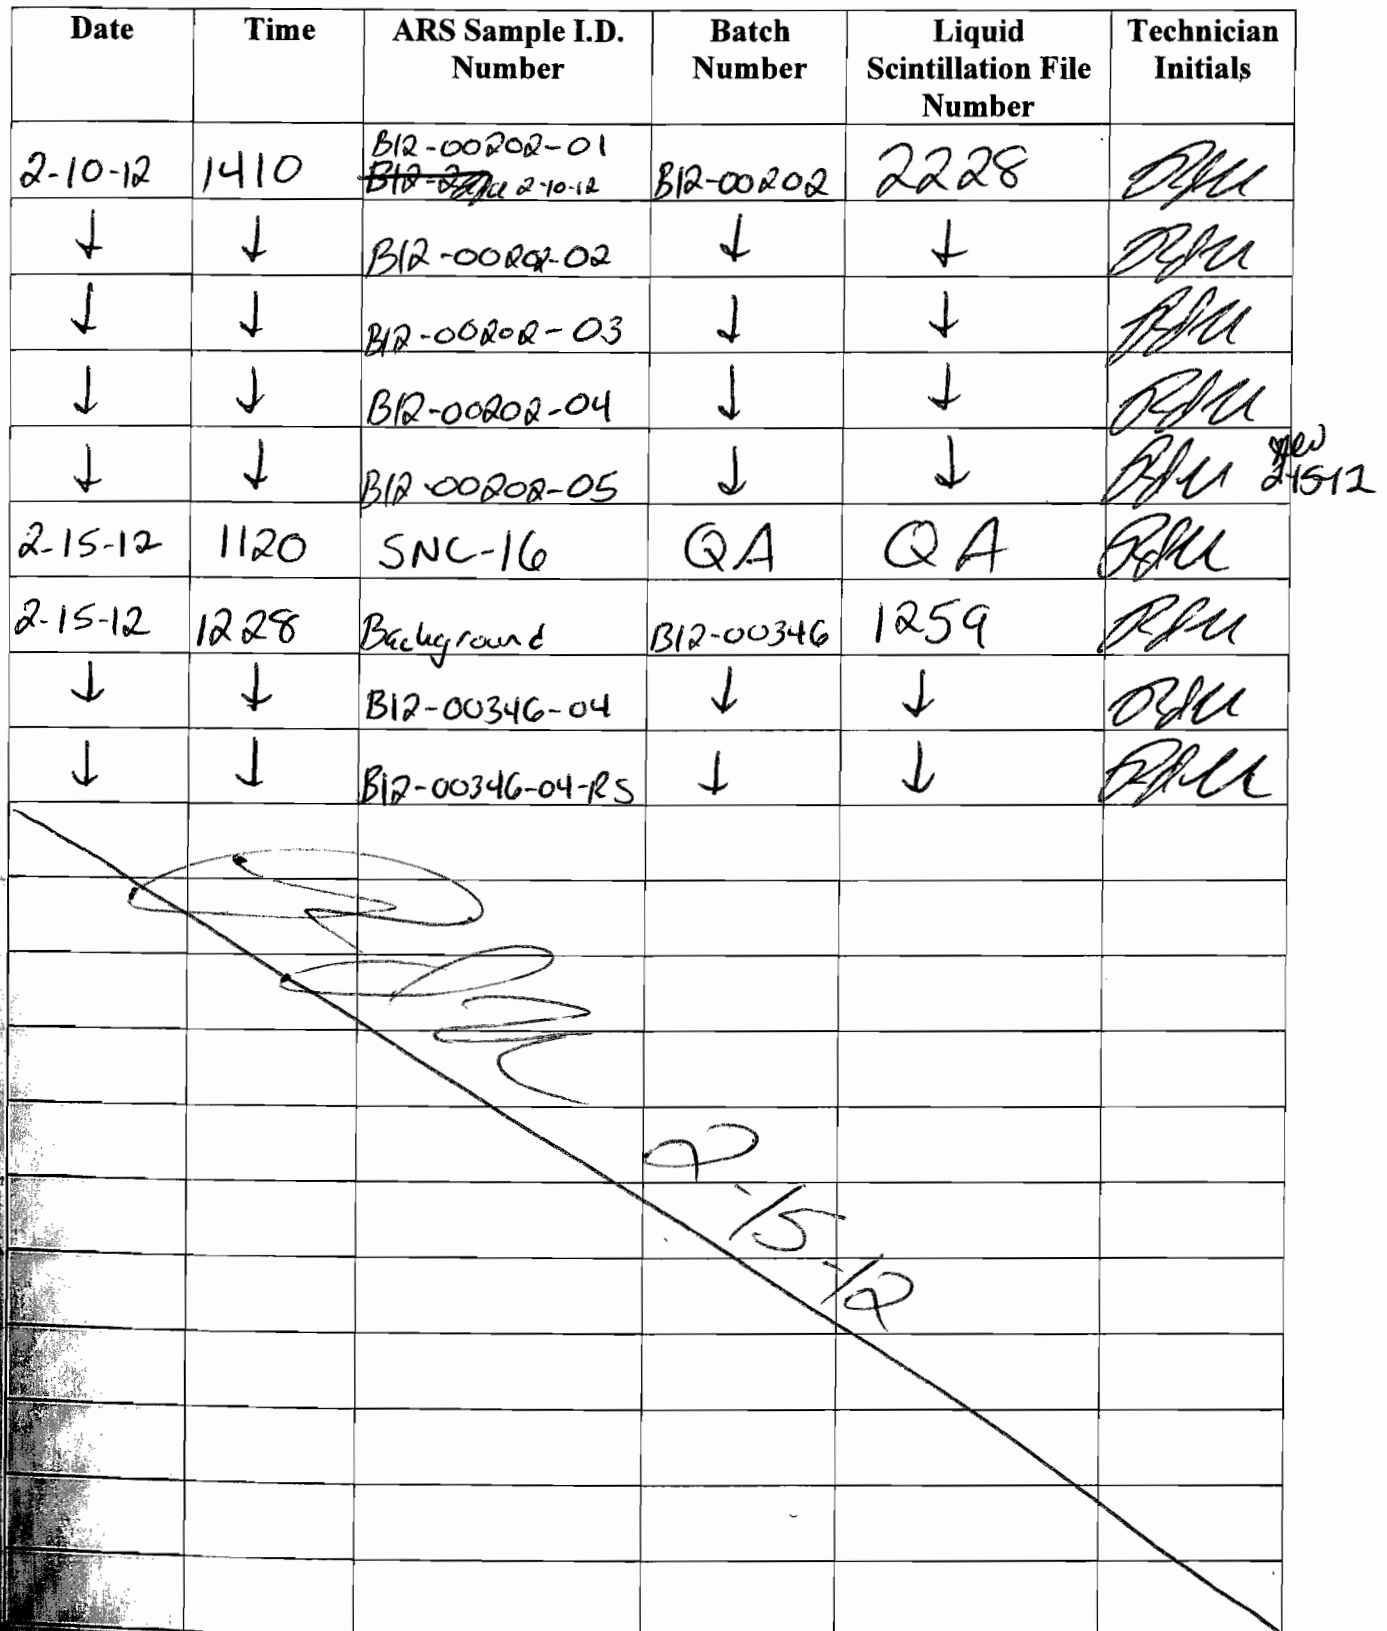 Date Time ARS Sample I.D. Number Batch Number Liquid Scintillation File Number Technician Initials
B12-00202-01
2-10-12 1410 2-10-12 B12-00202 2228
↓ ↓ B12-00202-02 ↓ ↓
↓ ↓ B12-00202-03 ↓ ↓
↓ ↓ B12-00202-04 ↓ ↓
↓ ↓ B12-00202-05 ↓ ↓ 2-15-12
2-15-12 1120 SNC-16 QA QA
2-15-12 1228 Background B12-00346 1259
↓ ↓ B12-00346-04 ↓ ↓
↓ ↓ B12-00346-04-RS ↓ ↓
2-15-12